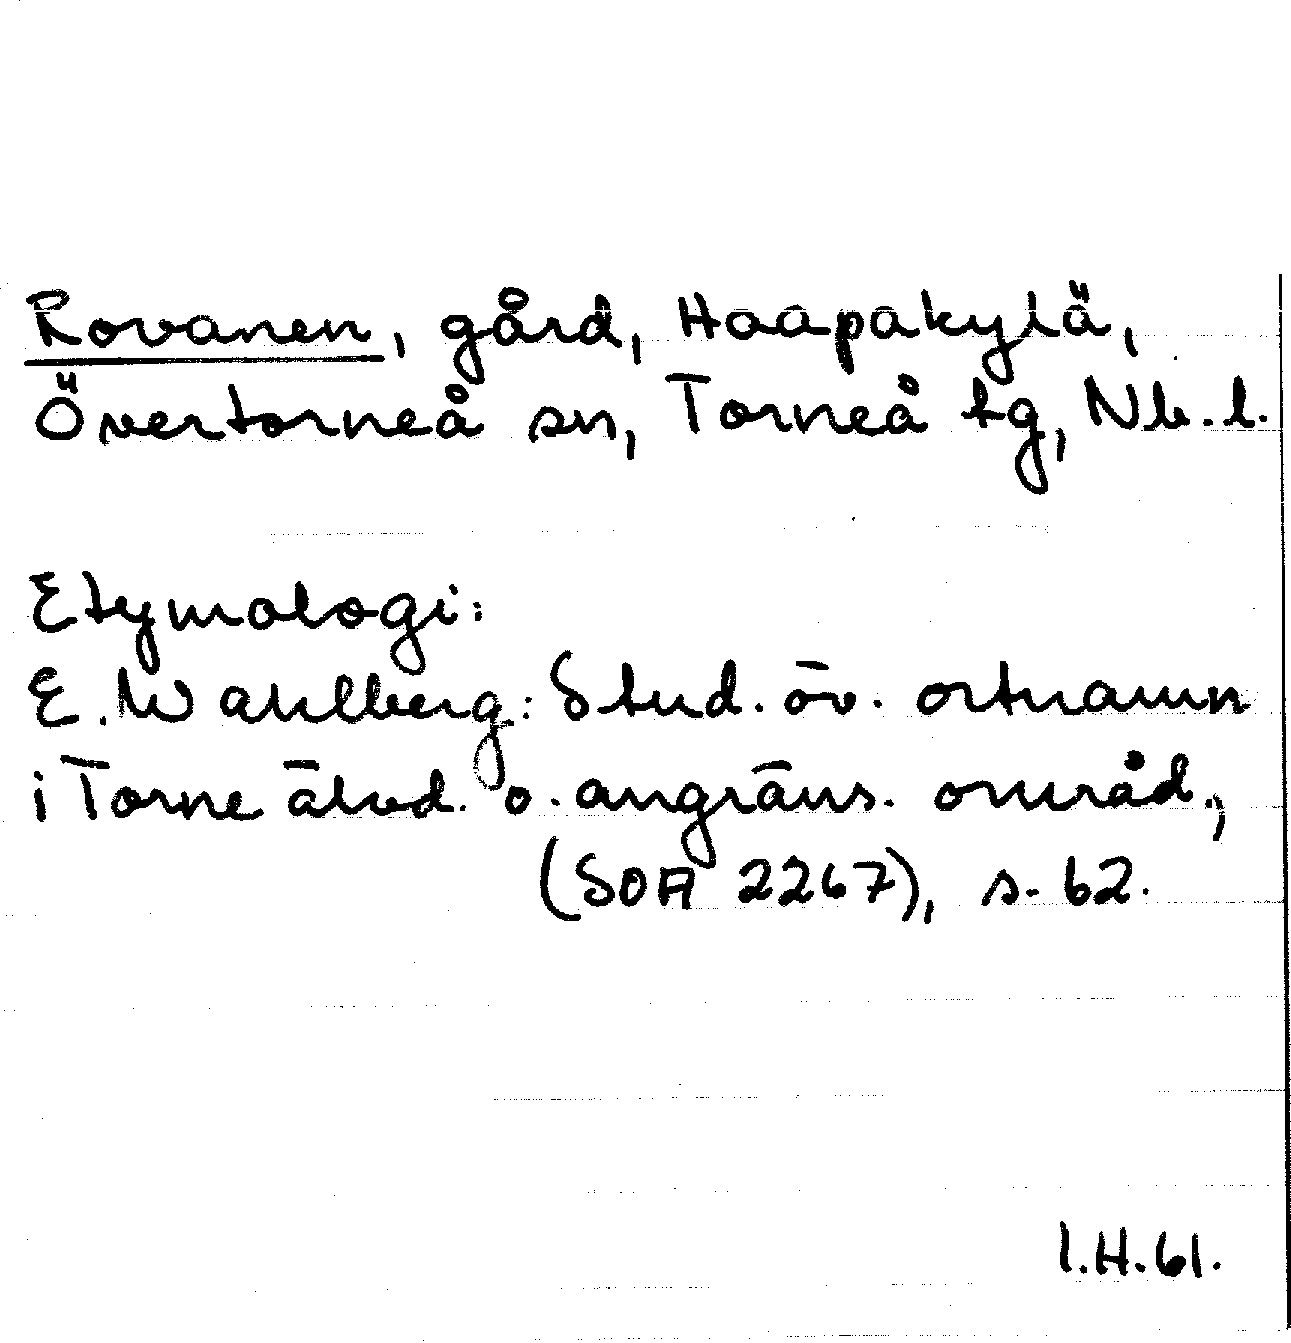 Rovanen, gård, Haapakylä,
Övertorneå sn, Torneå tg, Nb.l.
Etymologi:
E. Wahlberg: Stud. öv. ortnamn
i Torne älvd. o. angräns. områd.,
(SOA 2267), s. 62.
I.H.61.